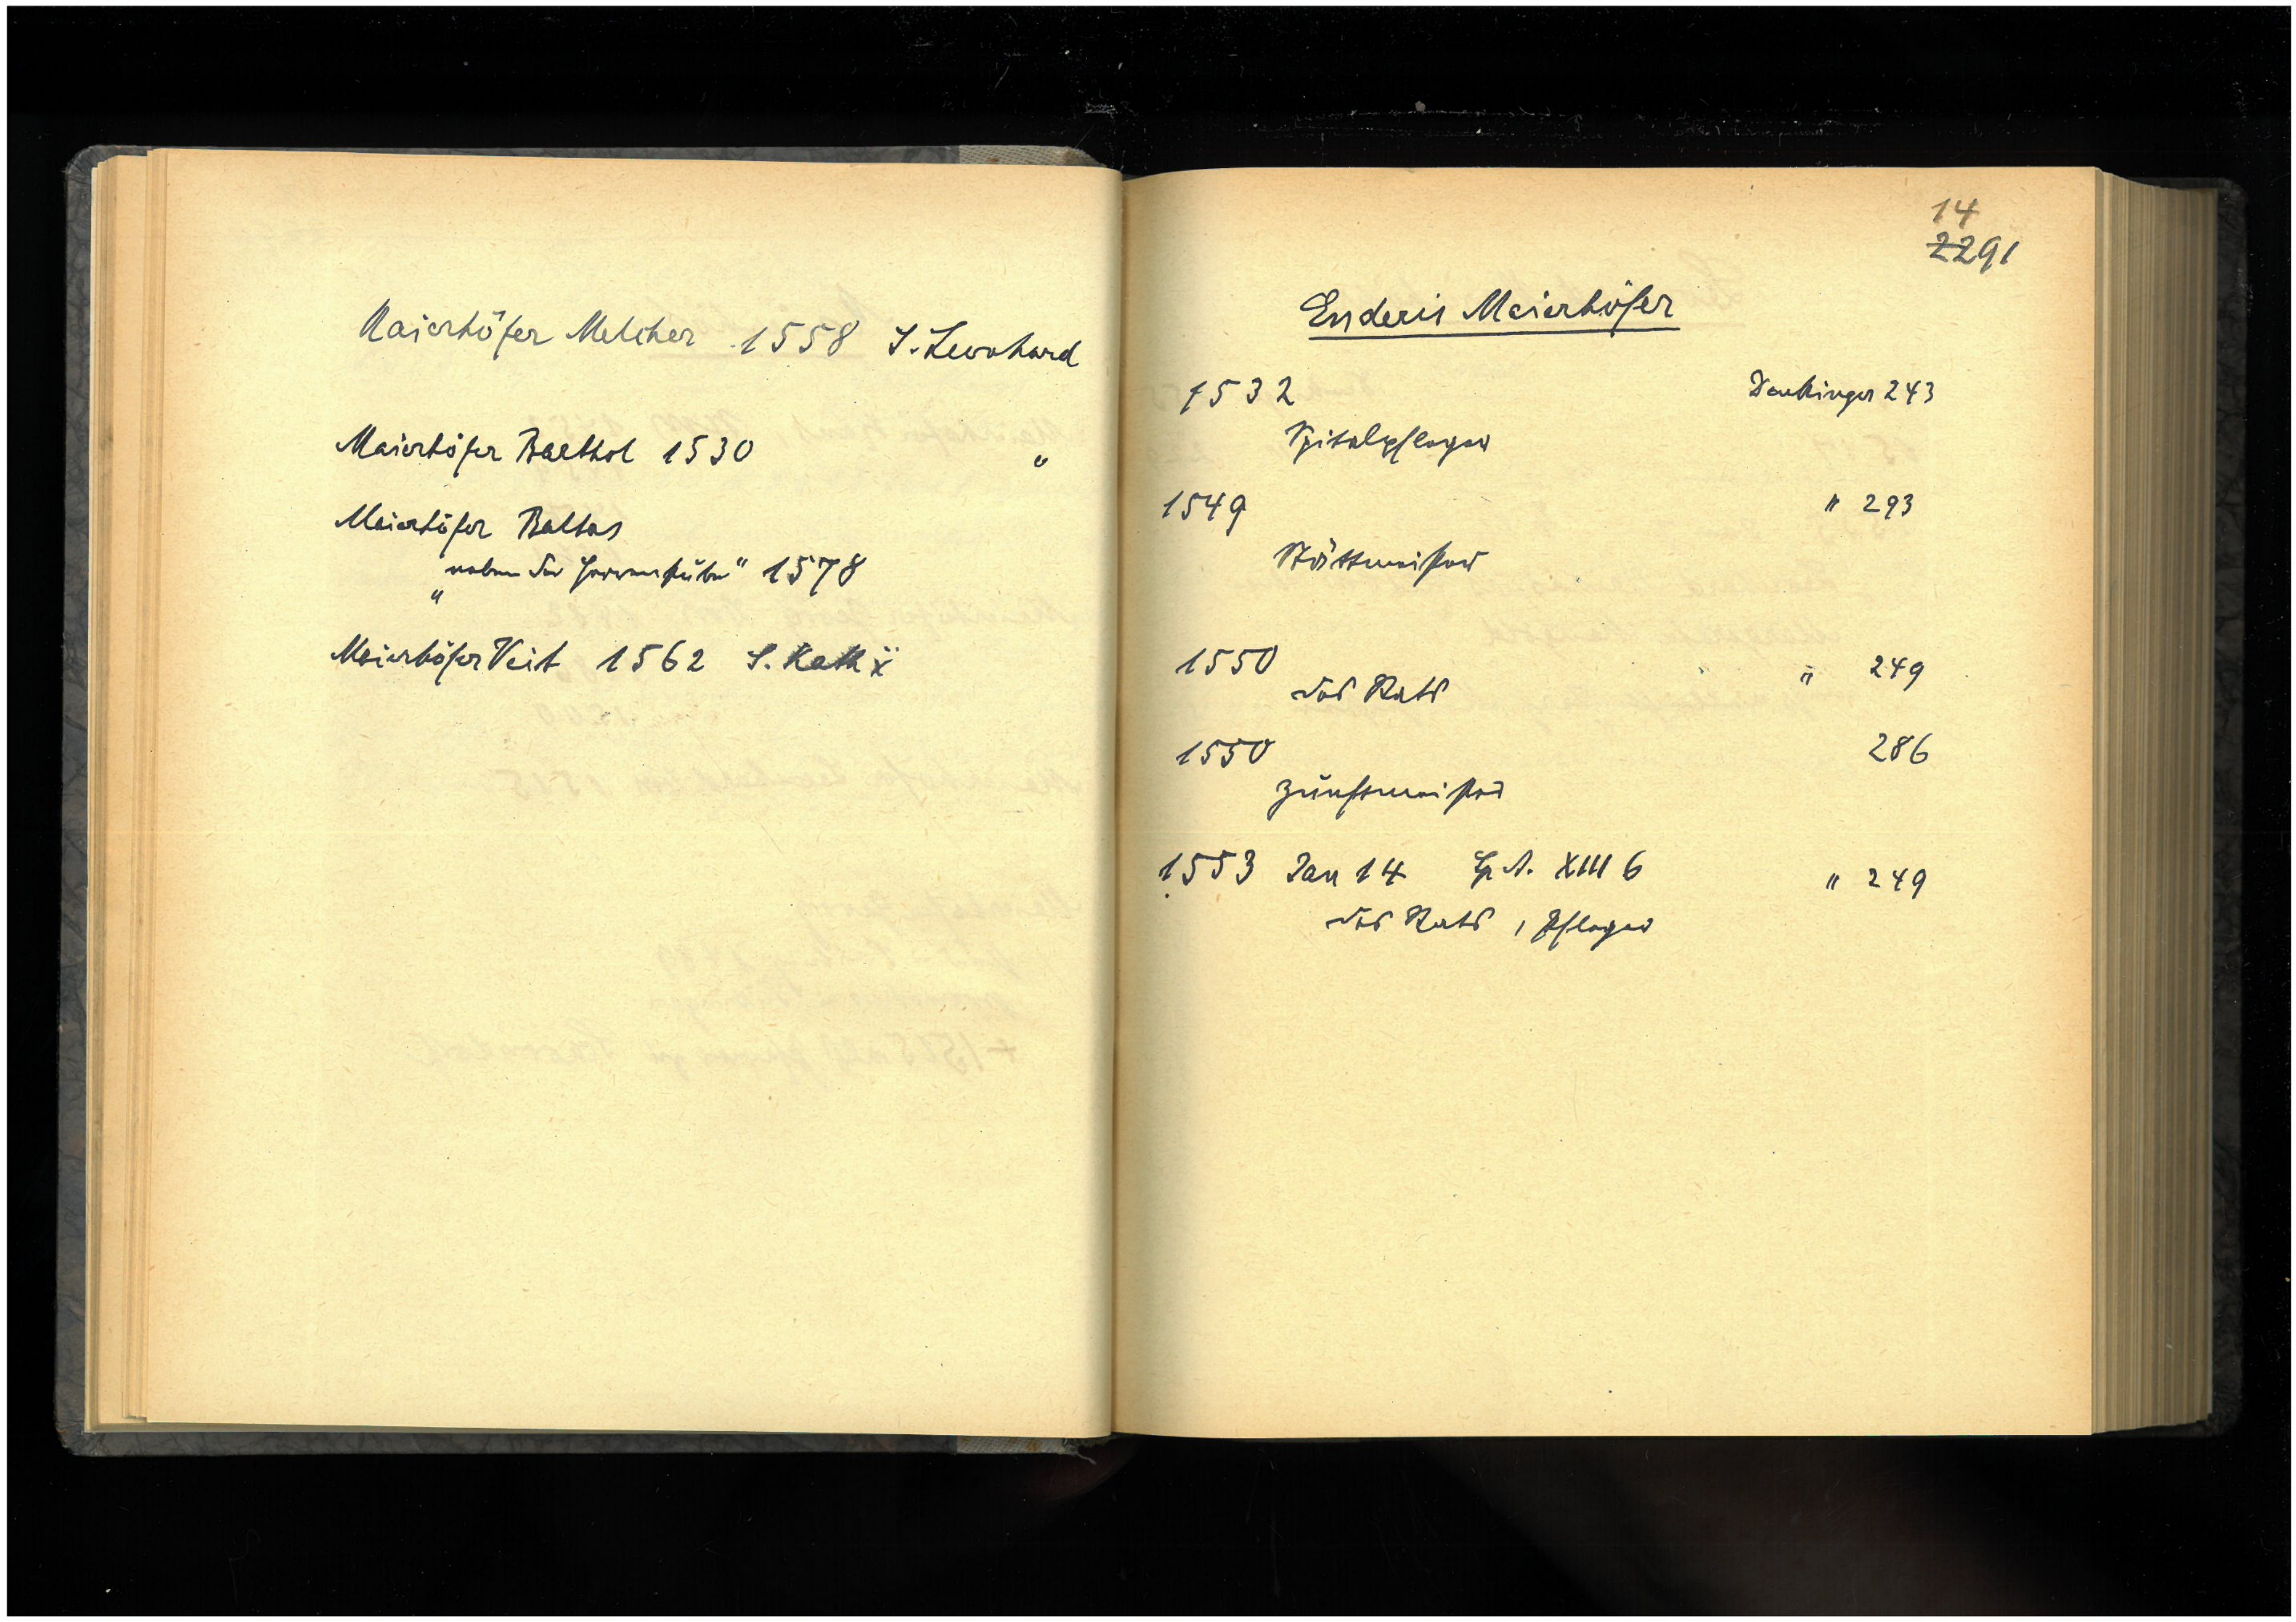 Maierhöfer Melcher 1558 S. Leonhard
Maierhöfer Barthol 1530 "
Maierhöfer Baltas
"neben der Herrenstube" 1578
"
Maierhöfer Veit 1562 S. Kath
14
2291
Enderis Maierhöfer
1532 Denkinger 243
Spitalpfleger
1549 " 293
Stättmeister
1550 " 249
des Rats
1550 286
Zunftmeister
1553 Jan 14 Sp. A. XIII 6 " 249
des Rats, Pfleger